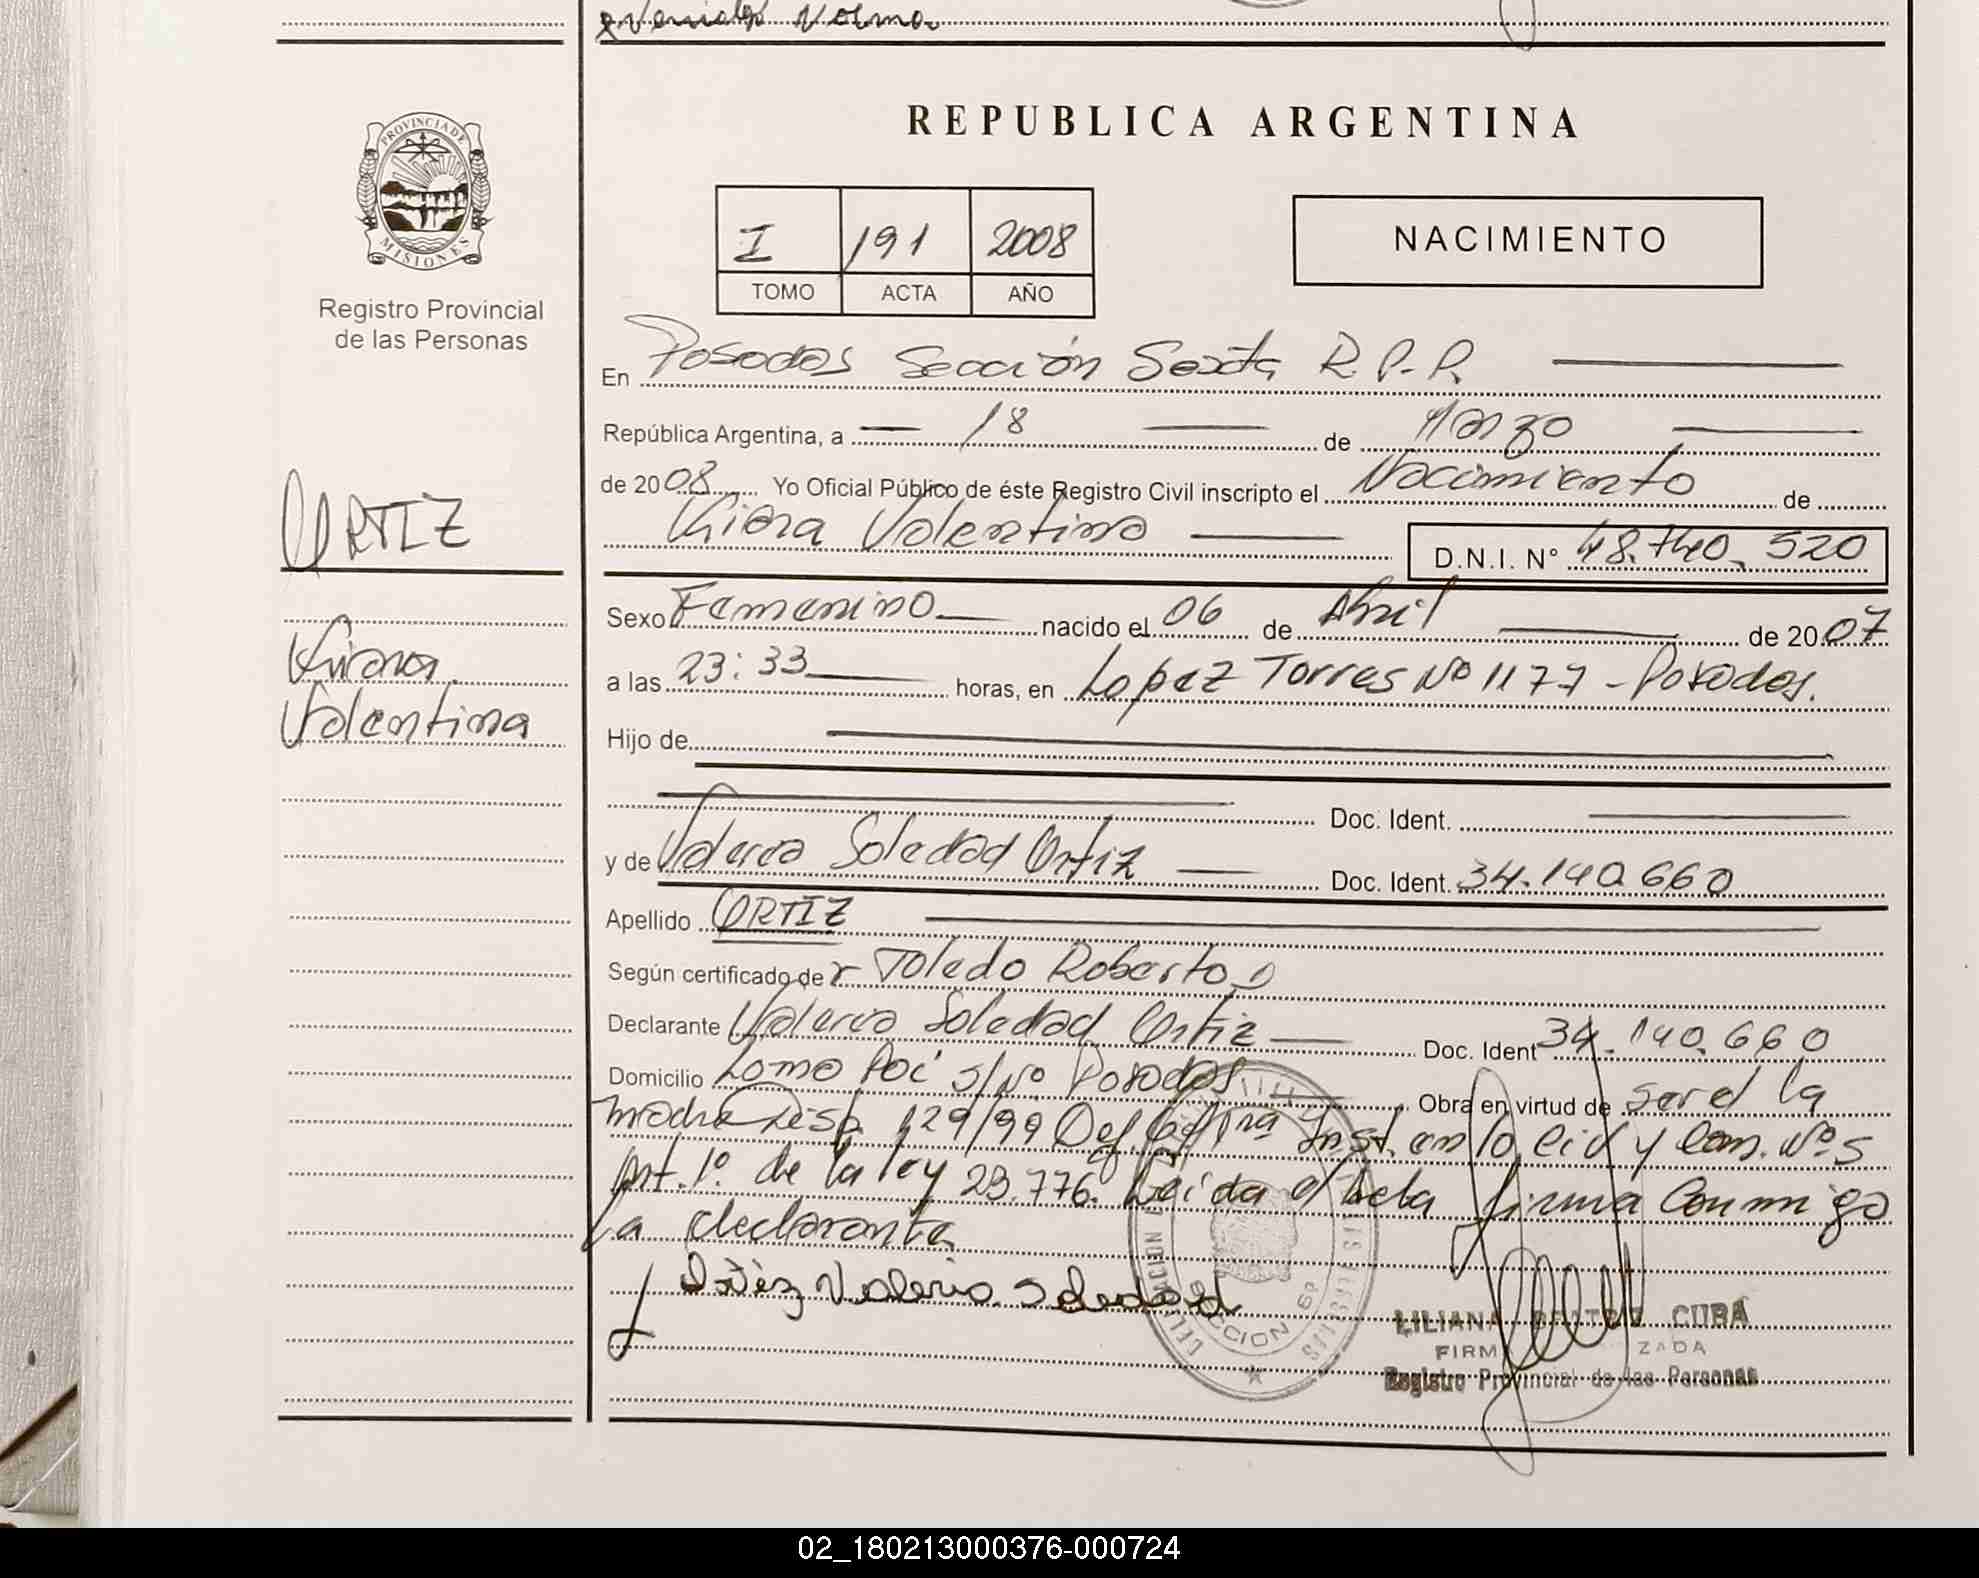 Norma
PROVINCIA DE
MISIONES
Registro Provincial
de las Personas
ORTIZ
Kiara
Valentina
REPUBLICA ARGENTINA
I 191 2008
TOMO ACTA AÑO
NACIMIENTO
En Posadas Sección Sexta R.P.P.
República Argentina, a 18 de Marzo
de 2008 Yo Oficial Público de éste Registro Civil inscripto el Nacimiento de
Kiara Valentina D.N.I. N° 48.740.520
Sexo Femenino nacido el 06 de Abril de 2007
a las 23:33 horas, en Lopez Torres Nº 1177 - Posadas.
Hijo de
Doc. Ident.
y de Valeria Soledad Ortiz Doc. Ident. 34.140.660
Apellido ORTIZ
Según certificado de Toledo Roberto
Declarante Valeria Soledad Ortiz Doc. Ident 34.140.660
Domicilio Loma Poi s/Nº Posadas Obra en virtud de ser el la
madre Desp. 129/99 Def. 1ra Inst. en lo Civ y Com. Nº 5
Art. 1º de la ley 23.776. Leida el acta firma conmigo
la declarante
Ortiz Valeria Soledad
SECCION 6a
LILIANA BEATRIZ CUBA
FIRM ZADA
Registro Provincial de las Personas
02_180213000376-000724